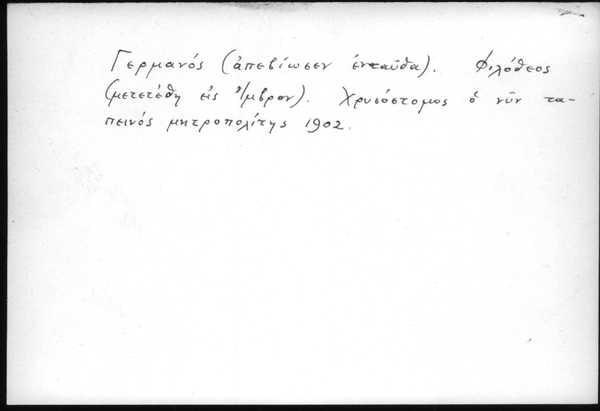 Γερμανός (ἀπεβίωσεν ἐνταῦθα). Φιλόθεος
(μετετέθη εἰς Ἴμβρον). Χρυσόστομος ὁ νῦν τα-
πεινός μητροπολίτης 1902.